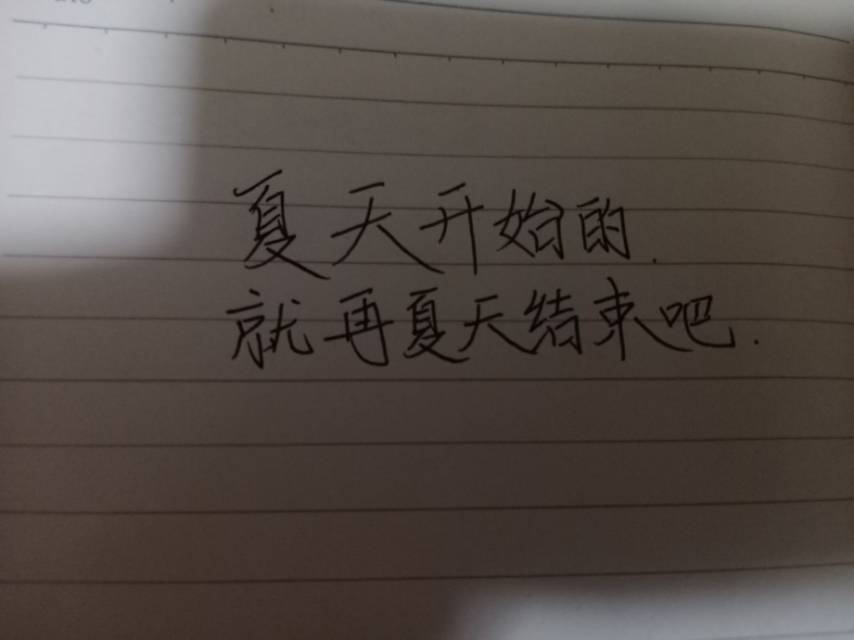 夏天开始的.
就再夏天结束吧.